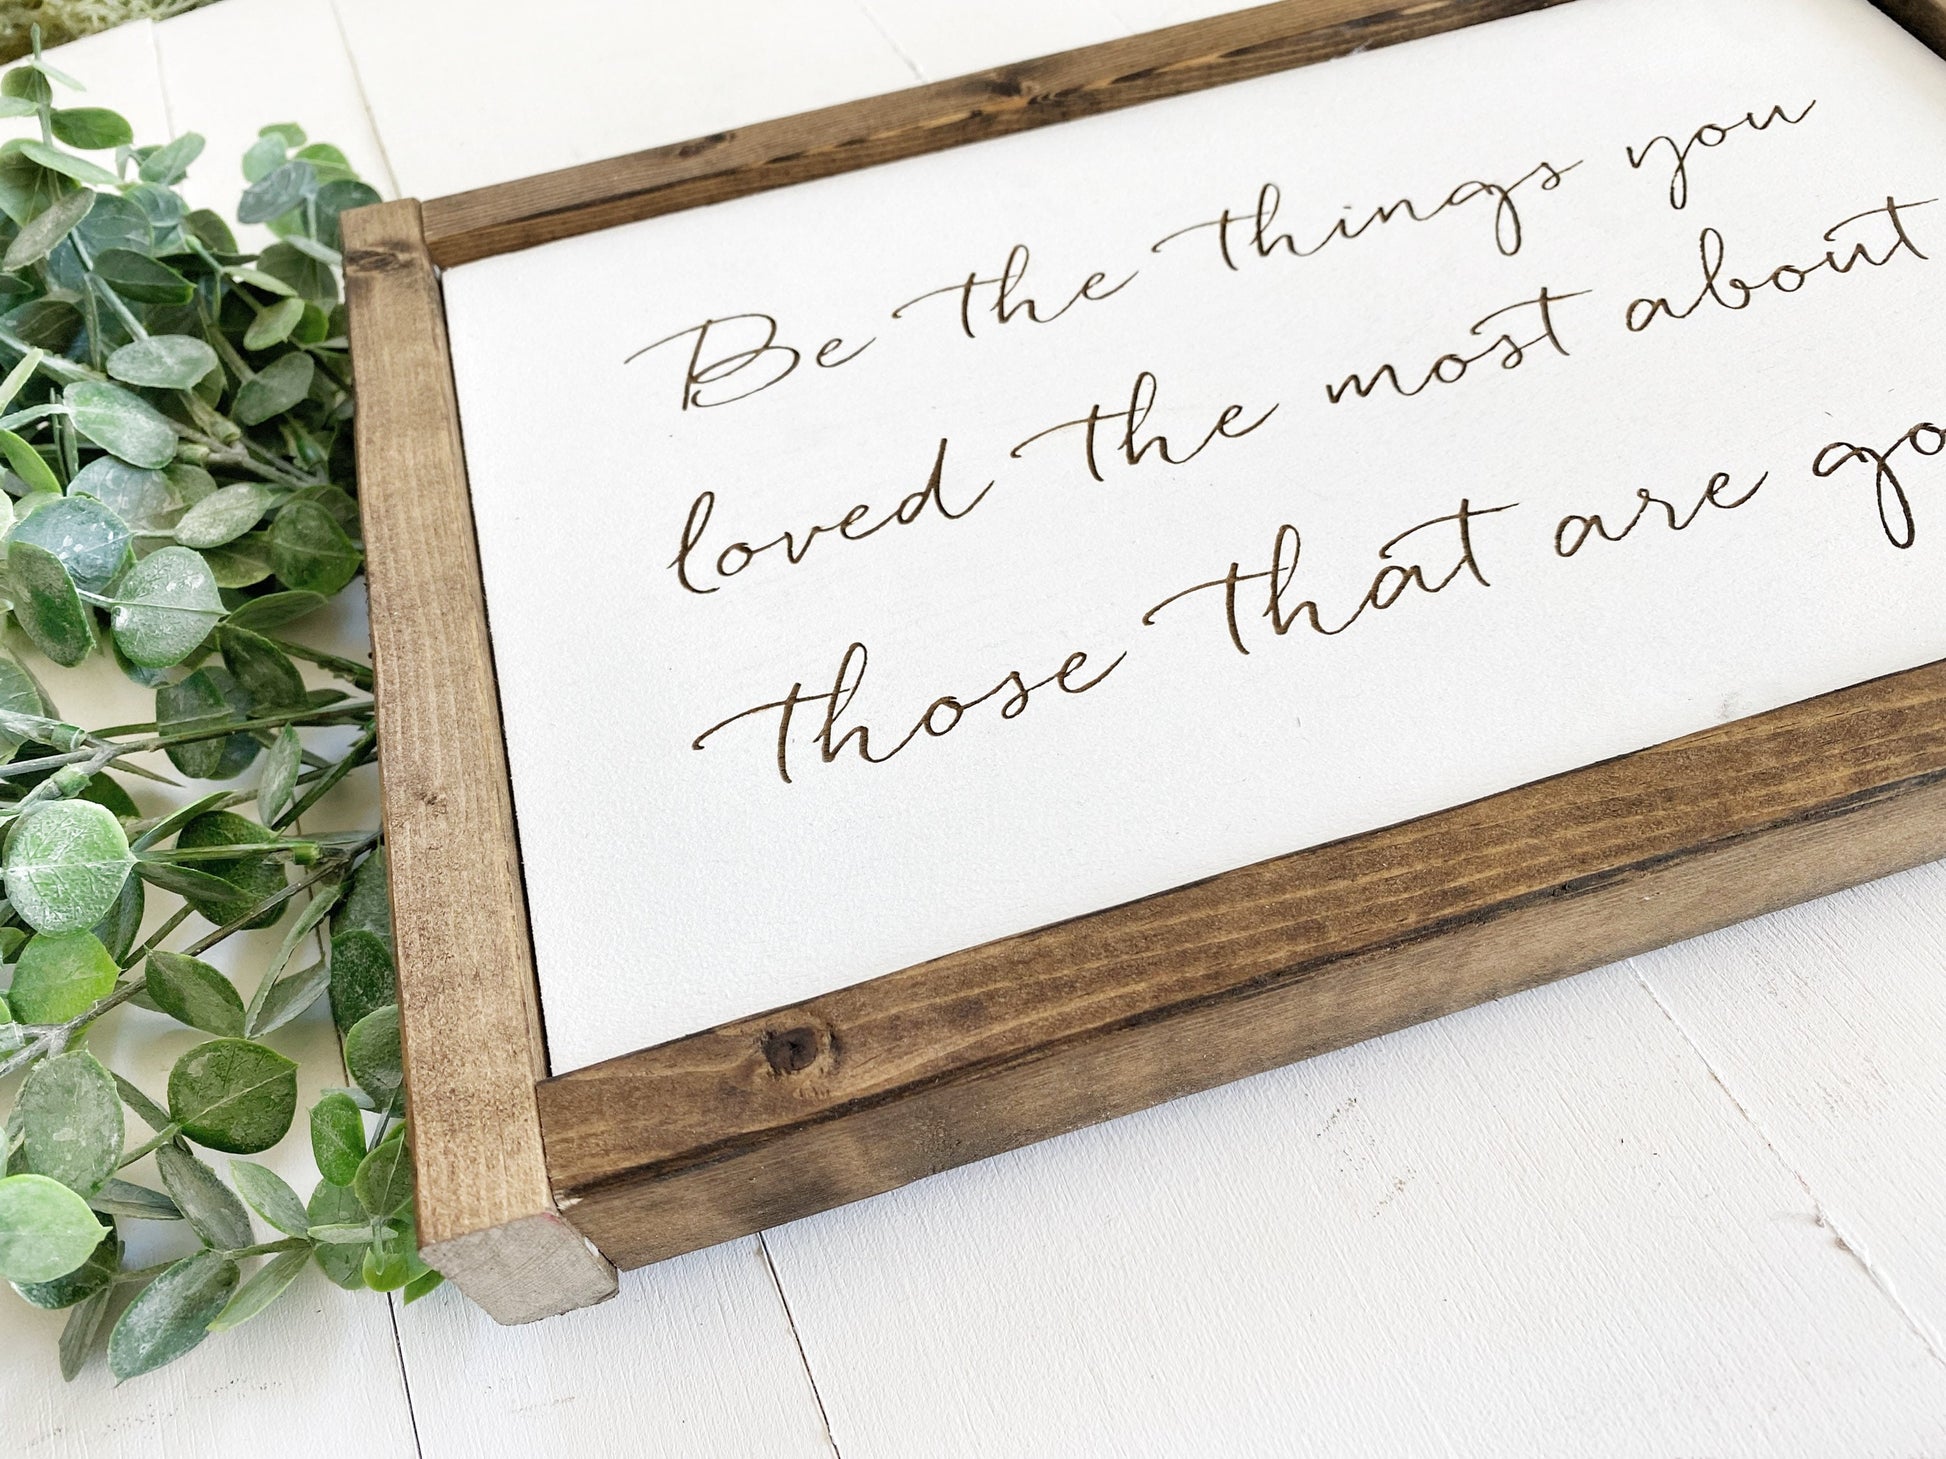 Be the things you
loved the most about
those that are